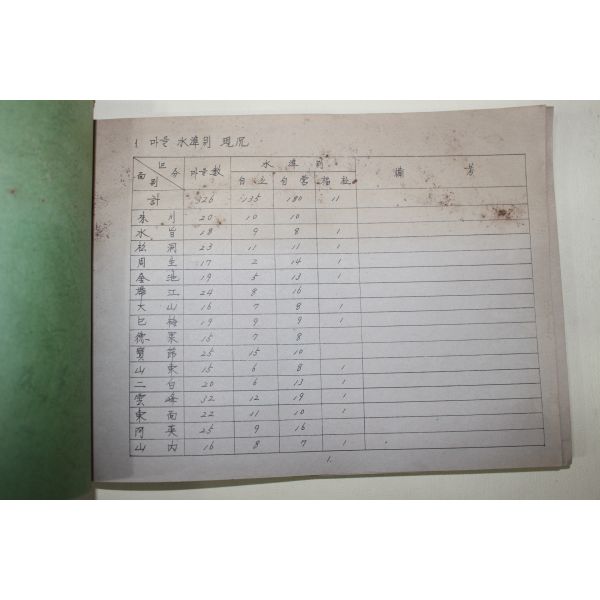 1. 마을 水準別 現況
区分 面別 마을數 水準別 備考
自立 自営 福祉
計 326 135 180 11
朱川 20 10 10
水旨 18 9 8 1
松洞 23 11 11 1
周生 17 2 14 1
金池 19 5 13 1
帶江 24 8 16
大山 16 7 8 1
巳梅 19 9 9 1
德果 15 7 8
寶節 25 15 10
山東 15 6 8 1
二白 20 6 13 1
雲峰 32 12 19 1
東面 22 11 10 1
阿英 25 9 16
山内 16 8 7 1
1.